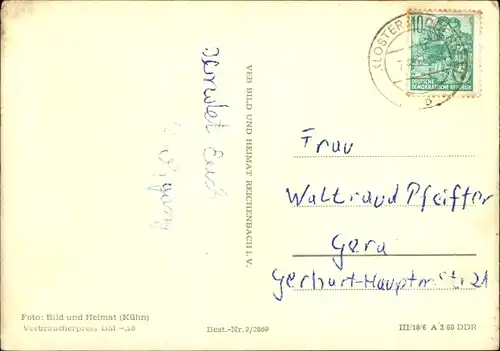 10
DEUTSCHE
DEMOKRATISCHE REPUBLIK
KLOSTER
b
VEB BILD UND HEIMAT REICHENBACH I. V.
Frau
Waltraud Pfeiffer
Gera
Gerhart-Hauptm 21
Foto: Bild und Heimat (Kühn)
Verbraucherpreis DM -,20
Best.-Nr. 2/2869
III/18/6 A 3 60 DDR